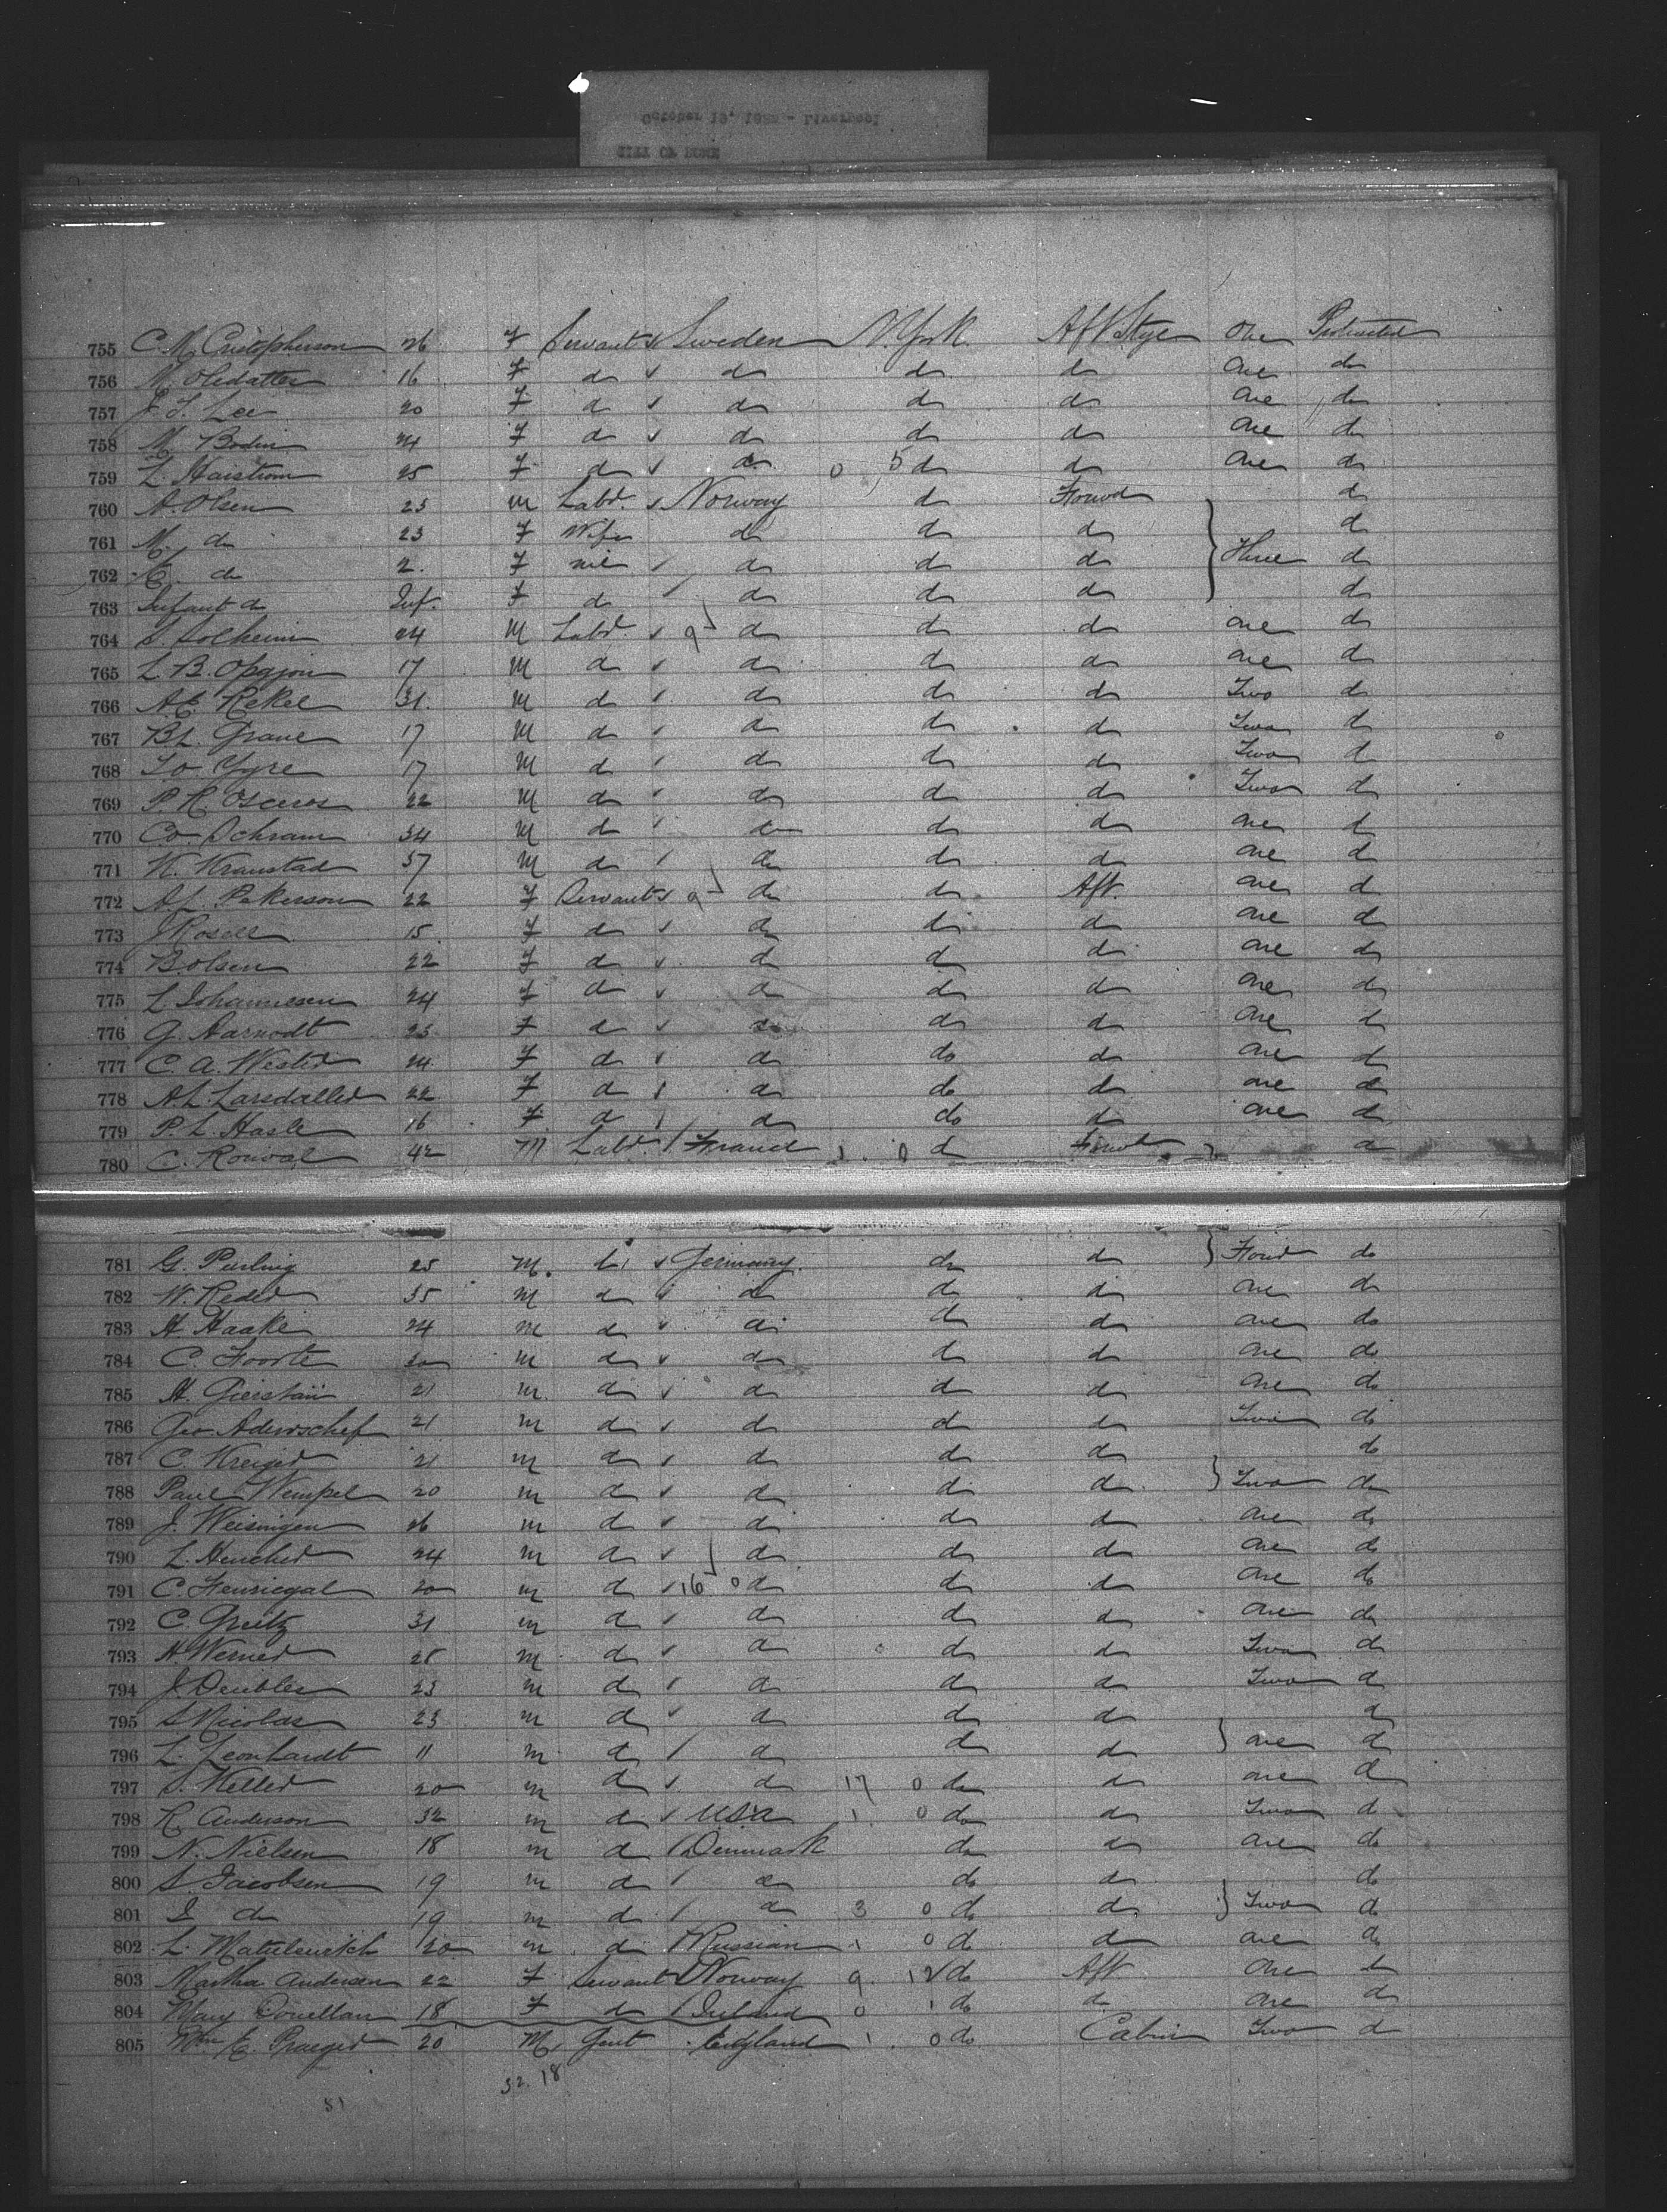 755 C. M. Cristopherson 26 F Servant Sweden N. York Aft Stge One Protracted
756 M. Oledatter 16 F do do do do One do
757 J. T. Lee 20 F do do do do One do
758 M. Bodin 24 F do do do do One do
759 L. 25 F do do 0 5 do do One do
760 A. Olsen 23 M Labr. Norway do Forwd do
761 M. do 23 F Wife do do do do
762 do 2 F nil do do do Three do
763 Infant do Inf. F do do do do do
764 S. Solheim 24 M Labr. 9 do do do One do
765 L. B. 17 M do do do do One do
766 A. E. Rekel 31 M do do do do Two do
767 B. L. Grane 17 M do do do do Two do
768 17 M do do do do Two do
769 P. R. 22 M do do do do Two do
770 Co. Schram 34 M do do do do One do
771 K. Kranstad 37 M do do do do One do
772 A. L. Pekerson 22 F Servant 9 do do Aft. One do
773 J. Rosell 15 F do do do do One do
774 B. Olsen 22 F do do do do One do
775 L. Johannesen 24 F do do do do One do
776 G. Harnodt 23 F do do do do One do
777 C. A. Wester 24 F do do do do One do
778 A. L. 22 F do do do do One do
779 P. L. Hasle 16 F do do do do One do
780 C. Rouval 42 M Labr. France 0 do Forwd do
781 G. 25 M. do Germany. do do Four do
782 W. Reder 35 M do do do do One do
783 H. Haake 24 M do do do do One do
784 C. 20 M do do do do One do
785 H. 21 M do do do do One do
786 Geo 21 M do do do do Two do
787 C. Kreiger 21 M do do do do do
788 Paul Wempel 20 M do do do do Two do
789 J. Weisingen 26 M do do do do One do
790 L. 24 M do do do do One do
791 C. 20 M do 16 0 do do do One do
792 C. Greitz 31 M do do do do One do
793 H. Werner 28 M do do do do Two do
794 J. Deubler 23 M do do do do Two do
795 S. Nicolas 23 M do do do do do
796 L. Leonhardt 11 M do do do do One do
797 S. Keller 20 M do do 17 0 do do One do
798 R. Anderson 32 M do USA 1 0 do do Two do
799 N. Nielsen 18 M do Denmark do do One do
800 S. Jacobsen 19 M do do do do do
801 do 19 M do do 3 0 do do Two do
802 L. 20 M do Russian 1 0 do do One do
803 Martha Andersen 22 F Servant Norway 9 12 do Aft One do
804 Mary Donellan 18 F do Ireland 0 1 do do One do
805 Wm E. Praeger 20 M. Gent England 1 0 do Cabin Two do
32. 18
51